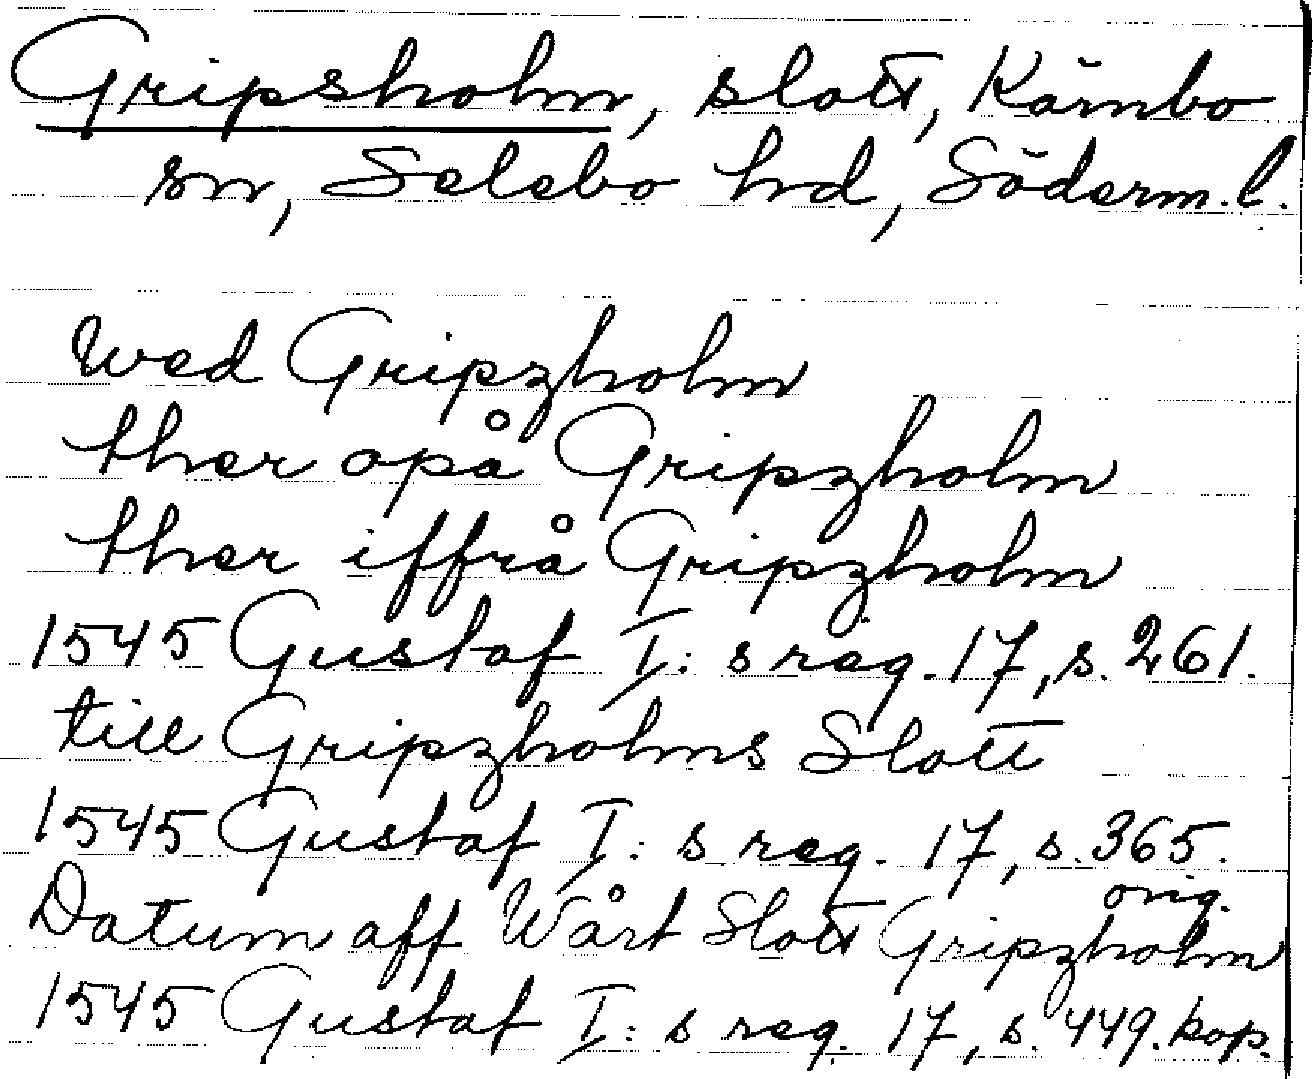 Gripsholm, slott, Kärnbo
sn, Selebo hd, Söderm. l.
Wed Gripzholm
ther opå Gripzholm
ther iffrå Gripzholm
1545 Gustaf I:s reg. 17, s. 261.
till Gripzholms Slott
1545 Gustaf I:s reg. 17, s. 365.
orig.
Datum aff Wårt Slott Gripzholm
1545 Gustaf I:s reg. 17, s. 449. kop.